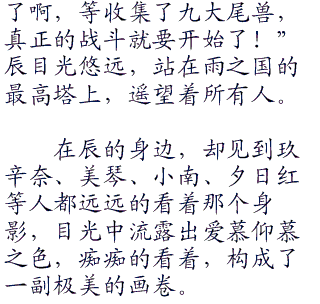 了啊，等收集了九大尾兽，
真正的战斗就要开始了！”
辰目光悠远，站在雨之国的
最高塔上，遥望着所有人。
在辰的身边，却见到玖
辛奈、美琴、小南、夕日红
等人都远远的看着那个身
影，目光中流露出爱慕仰慕
之色，痴痴的看着，构成了
一副极美的画卷。